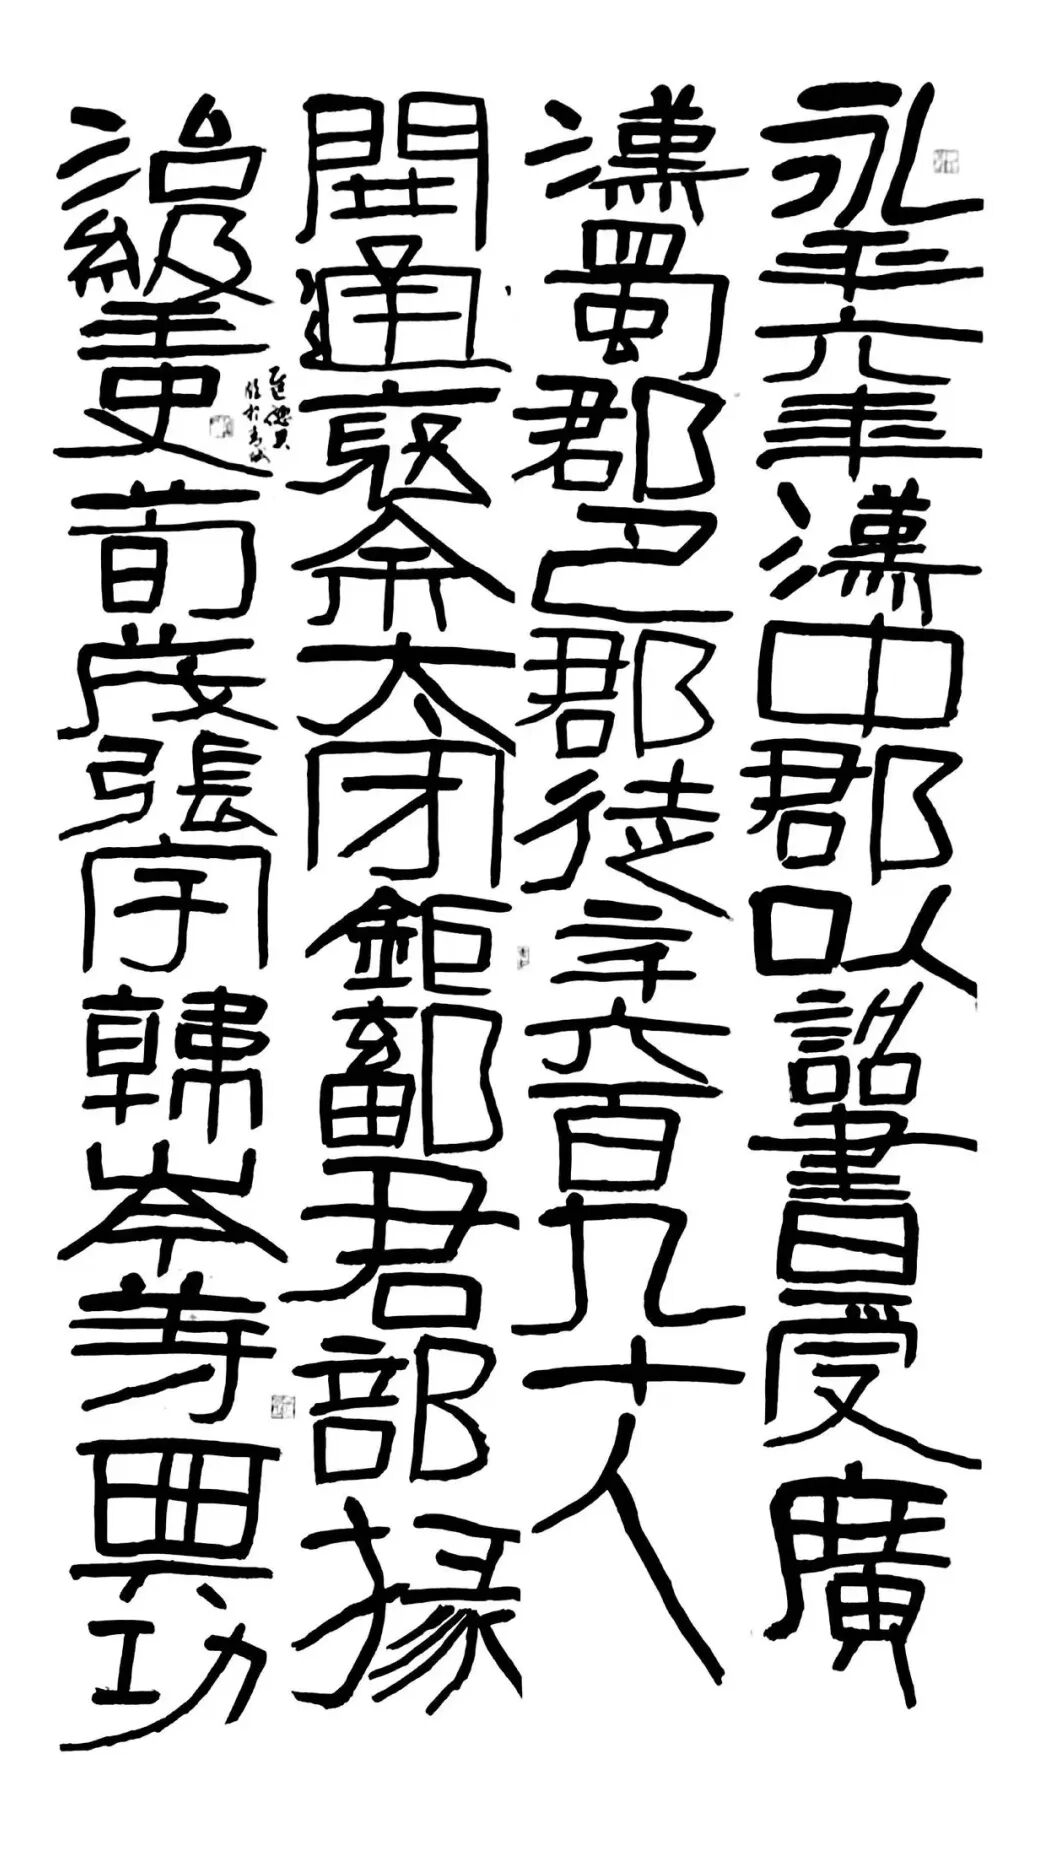 永平六年漢中郡以詔書受廣
漢蜀郡巴郡徒二千六百九十人
開通褒余太守鉅鄐君部掾
治級王史荀茂張宇韓岑等典功